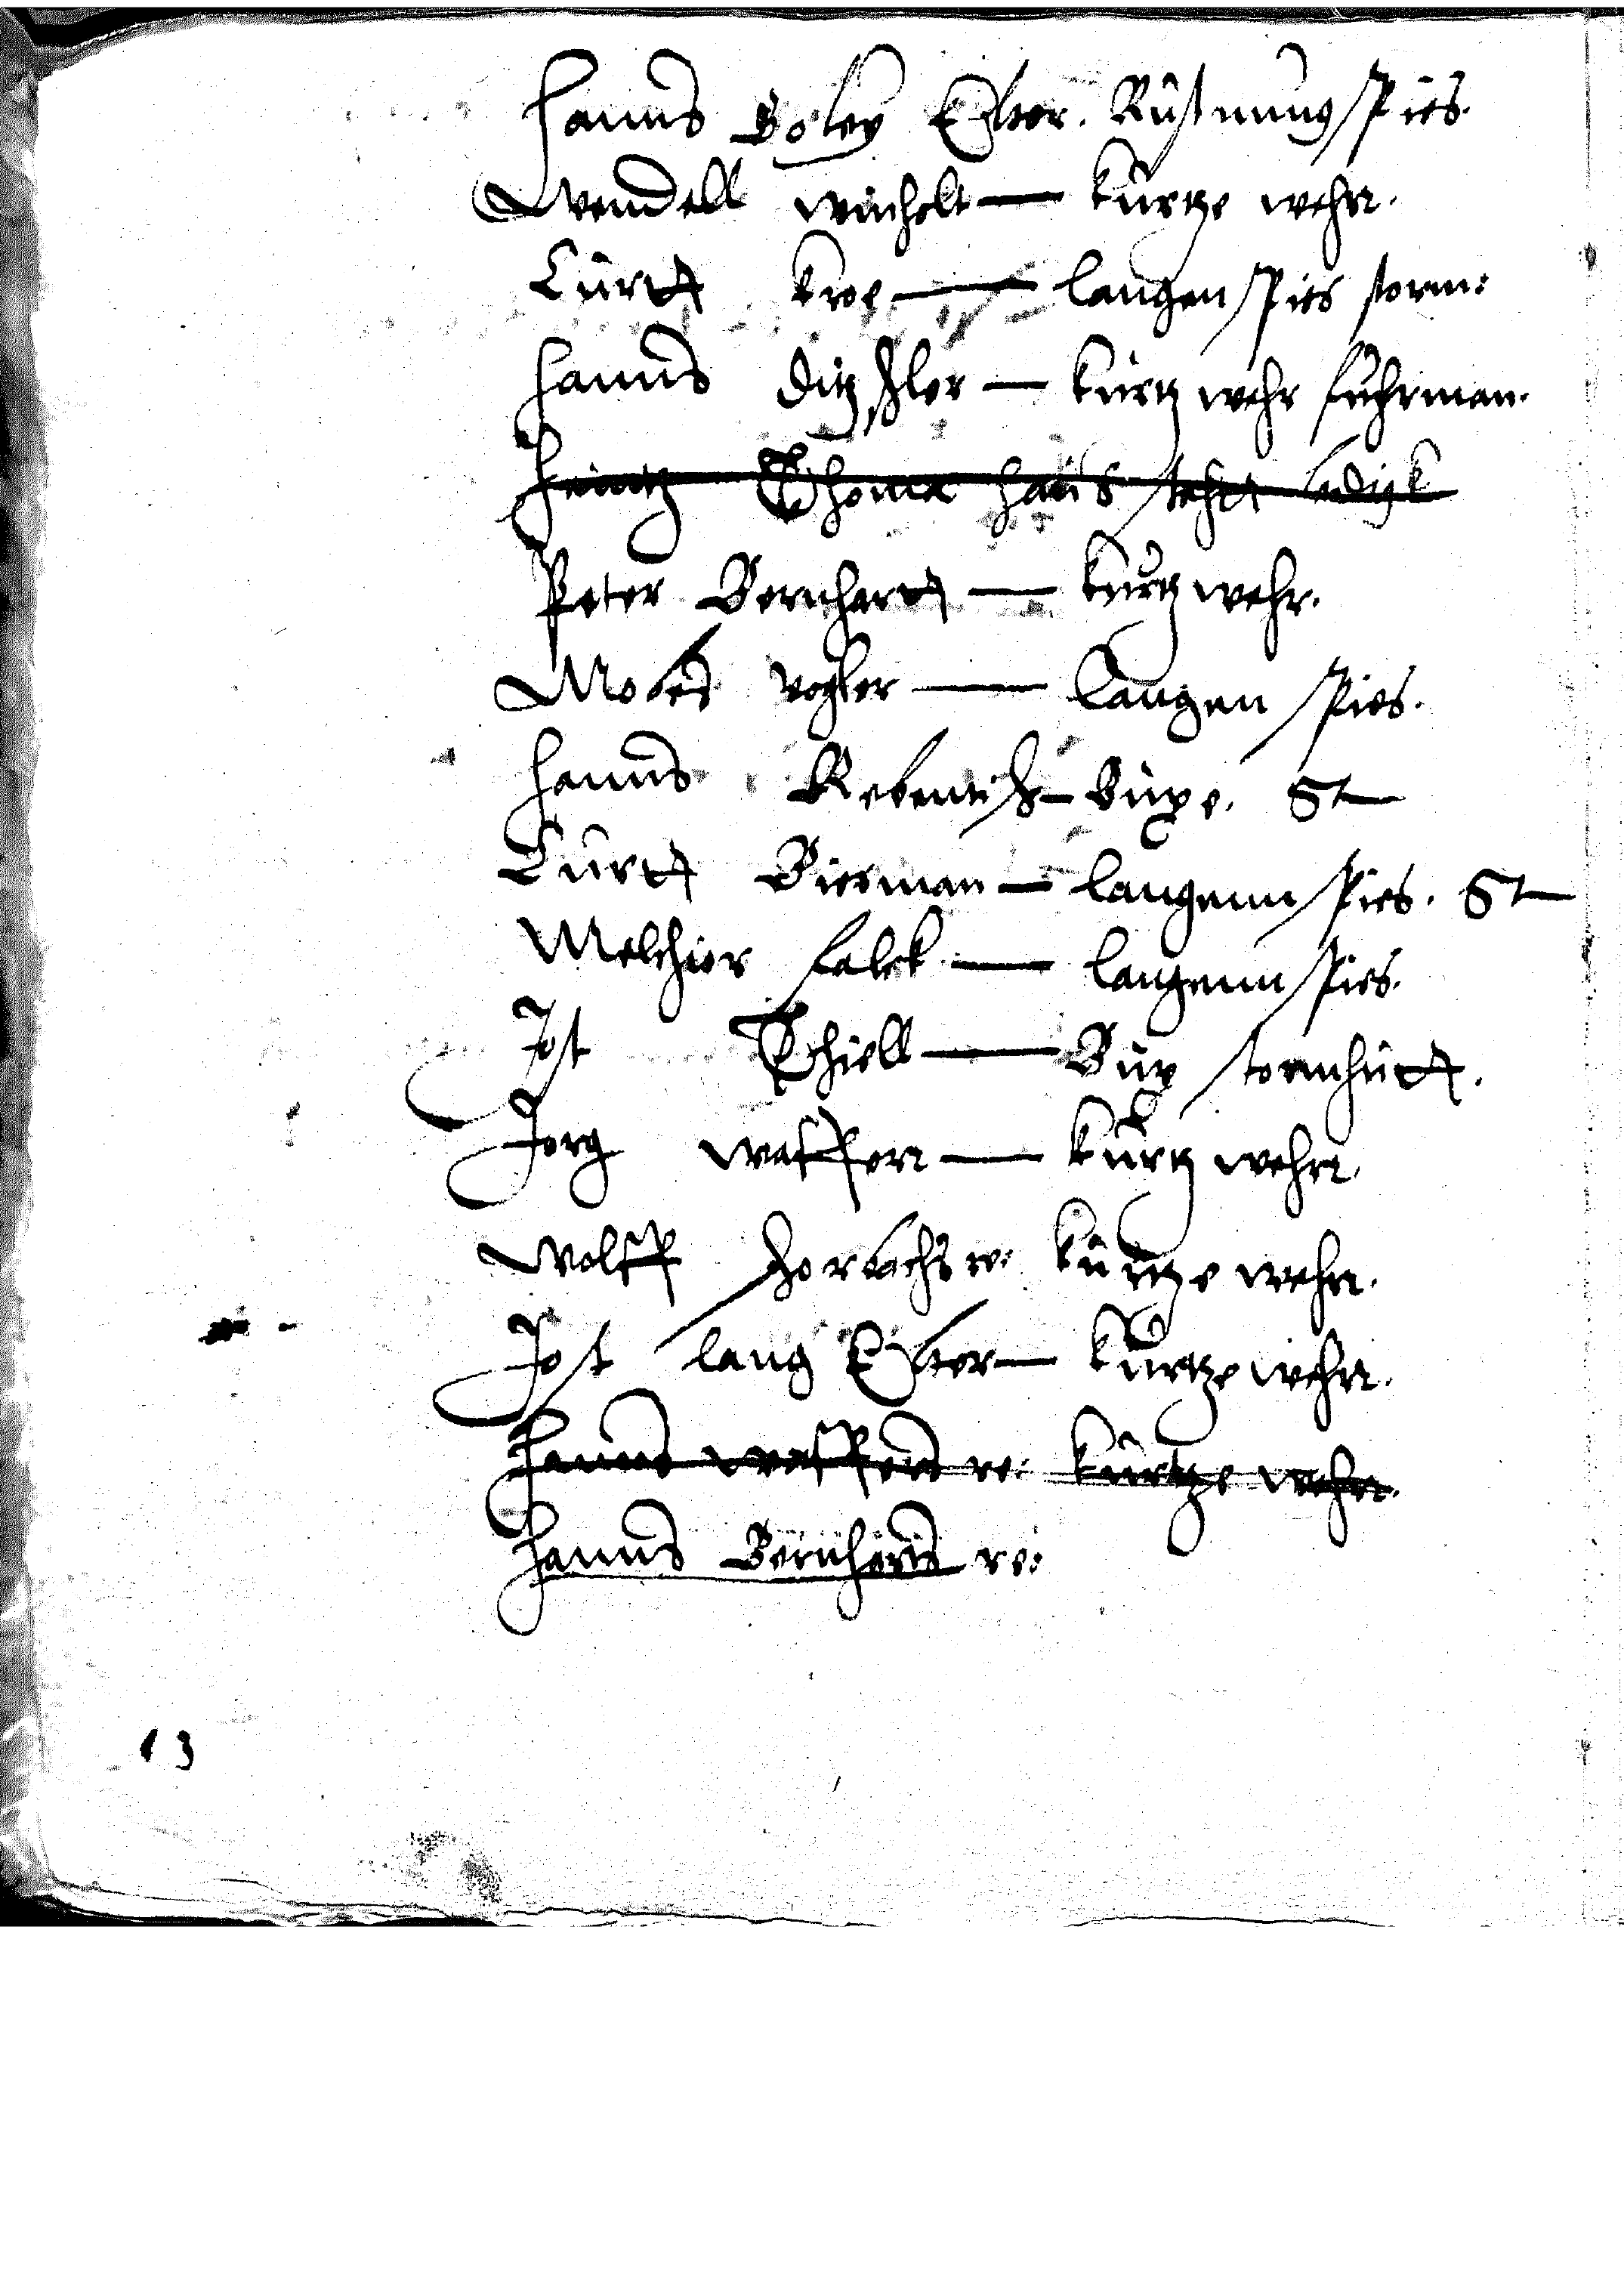 Hanns Boley Elter. Rüstnung Spies.
Wendell winholt — kurtze wehr.
Curtt kroe — langen Spies storm:
Hanns Ditzsler — kurtz wehr fuhrman.
Heintz Thoma haus stehet ledigk
Peter Bernhartt — kurtz wehr.
Mobes vogler — Langen Spies.
Hanns Rebentisch — Buxe. St
Curtt Bierman — langenn Spies. St
Melchior falck — langenn Spies.
Jost Thiell — Bux stormhutt.
Jorg waffen — kurtz wehr
Wolff Horbachs re: kurtze wehr.
Jost lang Elter — kurtze wehr.
Hanns waffers re: kurtze wehr.
Hanns Bernharts re:
13